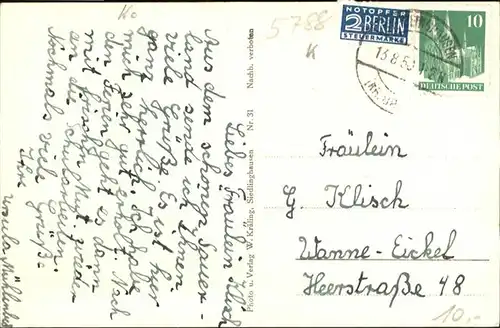 Ko
5788
K
NOTOPFER
2 BERLIN
STEUERMARKE
13.8.53
10
DEUTSCHE POST
Liebes Fräulein Klisch
Aus dem schönen Sauer-
land sende ich Ihnen
viele Grüße. Es ist hier
ganz herrlich. Ich habe
mich sehr gut erholt. Nach
den Ferien geht es dann
mit frischem Mut wieder
an die Schularbeiten.
Nochmals viele Grüße
Ihre
Ursula
Photo u. Verlag W. Kräling, Siedlinghausen Nr. 31 Nachb. verboten
Fräulein
G. Klisch
Wanne-Eickel
Heerstraße 48
10,-